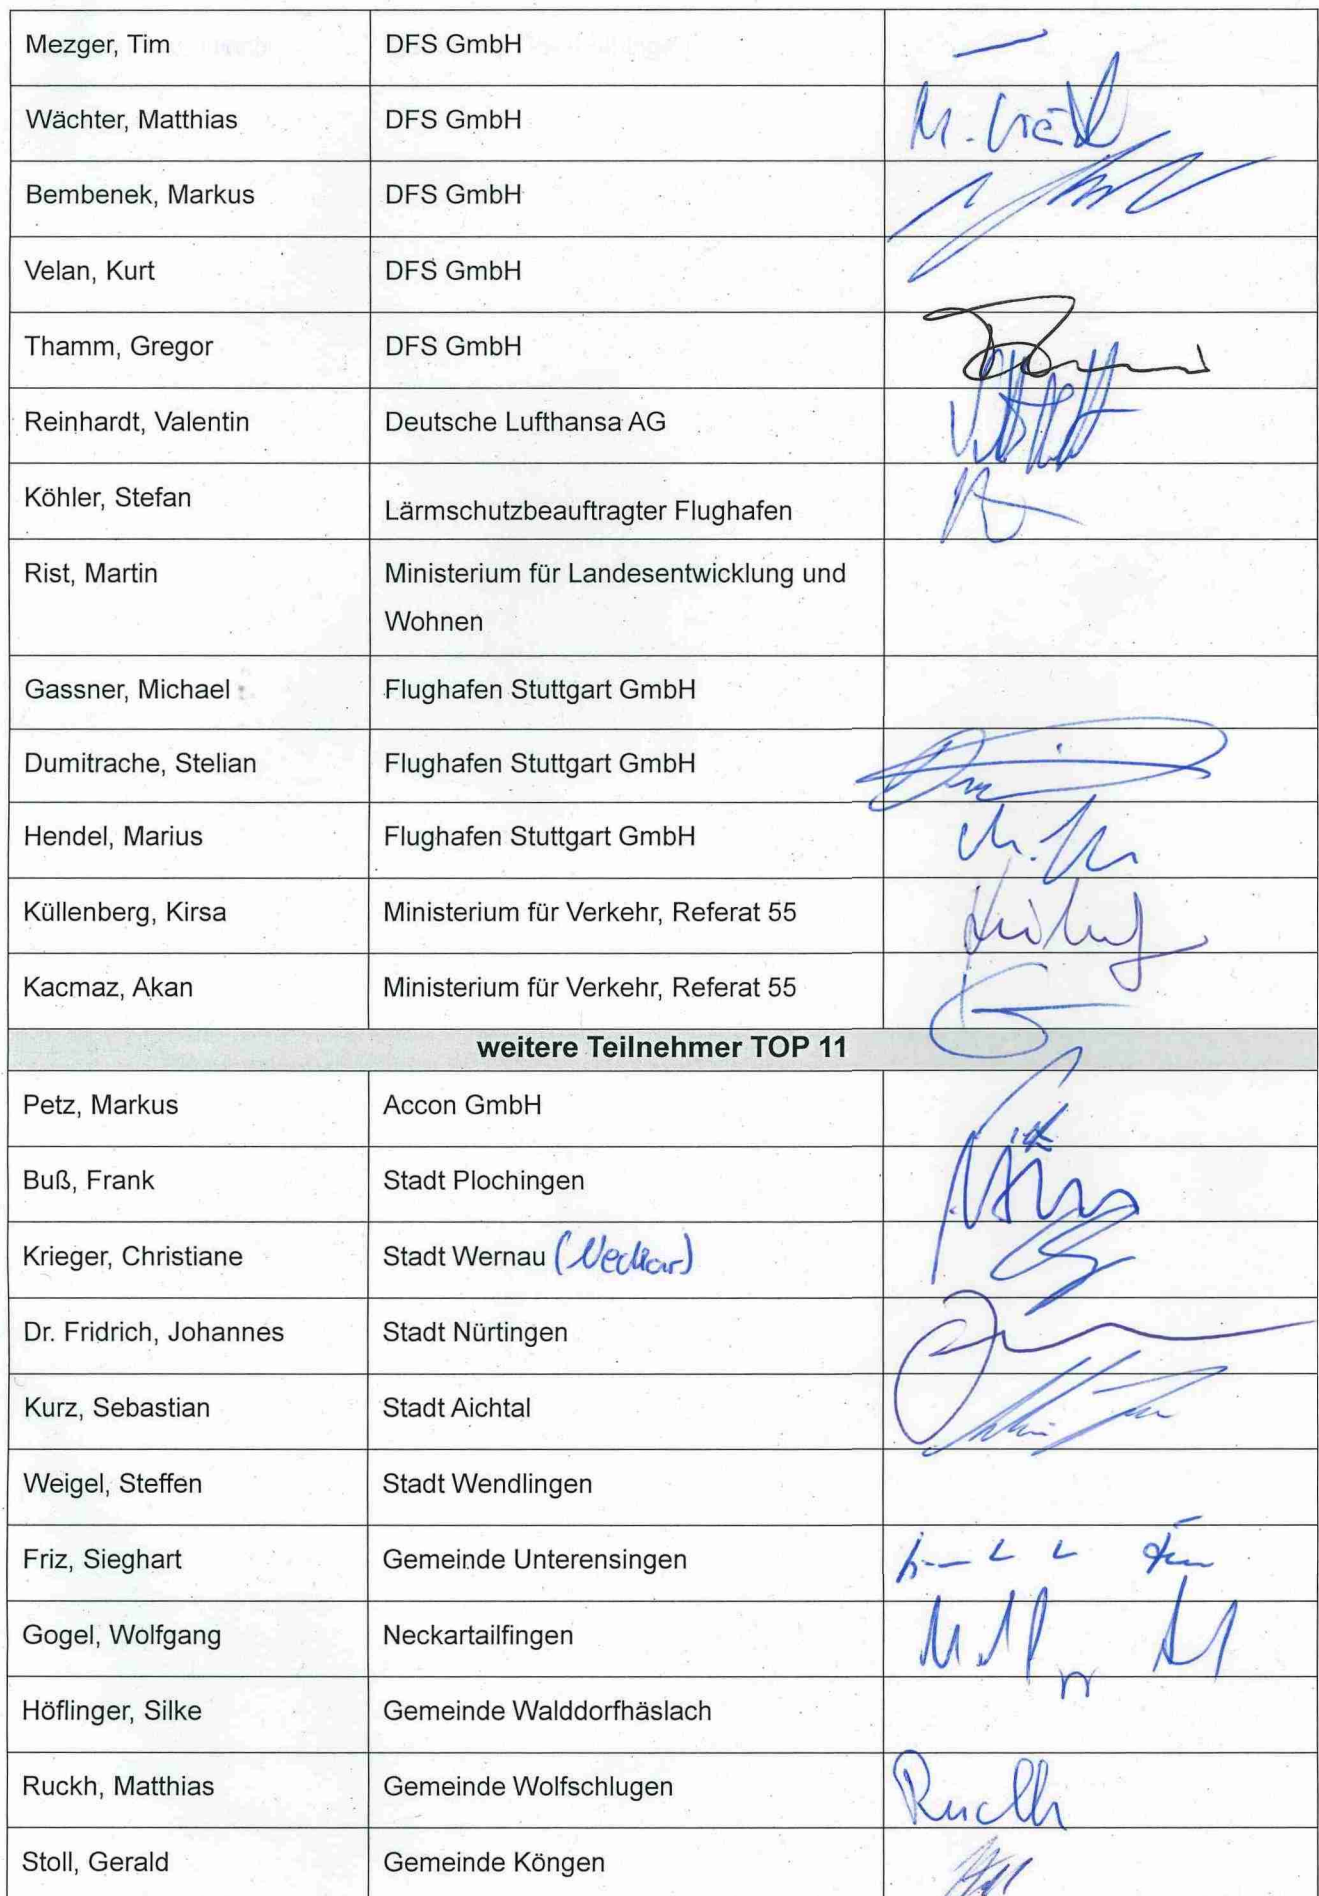 Mezger, Tim DFS GmbH
Wächter, Matthias DFS GmbH
Bembenek, Markus DFS GmbH
Velan, Kurt DFS GmbH
Thamm, Gregor DFS GmbH
Reinhardt, Valentin Deutsche Lufthansa AG
Köhler, Stefan Lärmschutzbeauftragter Flughafen
Rist, Martin Ministerium für Landesentwicklung und
Wohnen
Gassner, Michael Flughafen Stuttgart GmbH
Dumitrache, Stelian Flughafen Stuttgart GmbH
Hendel, Marius Flughafen Stuttgart GmbH
Küllenberg, Kirsa Ministerium für Verkehr, Referat 55
Kacmaz, Akan Ministerium für Verkehr, Referat 55
weitere Teilnehmer TOP 11
Petz, Markus Accon GmbH
Buß, Frank Stadt Plochingen
Krieger, Christiane Stadt Wernau (Neckar)
Dr. Fridrich, Johannes Stadt Nürtingen
Kurz, Sebastian Stadt Aichtal
Weigel, Steffen Stadt Wendlingen
Friz, Sieghart Gemeinde Unterensingen
Gogel, Wolfgang Neckartailfingen
Höflinger, Silke Gemeinde Walddorfhäslach
Ruckh, Matthias Gemeinde Wolfschlugen Ruckh
Stoll, Gerald Gemeinde Köngen